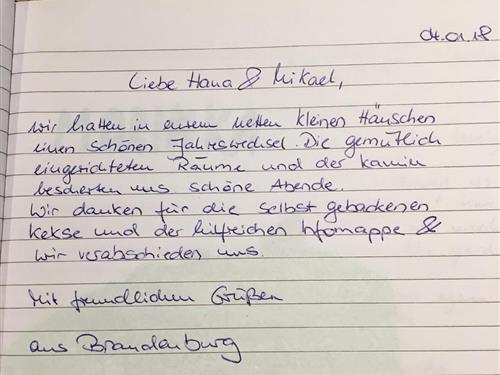 04.01.18
Liebe Hana & Mikael,
wir hatten in eurem netten kleinen Häuschen
einen schönen Jahreswechsel. Die gemütlich
eingerichteten Räume und der Kamin
bescherten uns schöne Abende.
Wir danken für die selbst gebackenen
Kekse und der hilfreichen Infomappe &
wir verabschieden uns.
Mit freundlichen Grüßen
aus Brandenburg